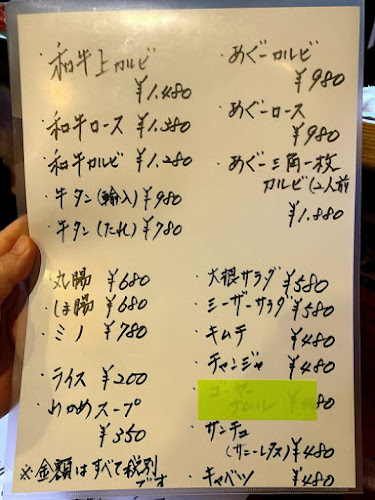 ・和牛上カルビ
¥1.480
・和牛ロース ¥1.380
・和牛カルビ ¥1.280
・牛タン(輸入) ¥980
・牛タン(たれ) ¥780
・丸腸 ¥680
・しま腸 ¥680
・ミノ ¥780
・ライス ¥200
・わかめスープ
¥350
※金額はすべて税別
です
・めぐーカルビ
¥980
・めぐーロース
¥980
・めぐー三角一枚
カルビ(2人前
¥1.880
・大根サラダ ¥580
・シーザーサラダ ¥580
・キムチ ¥480
・チャンジャ ¥480
・ゴーヤー
ナムル ¥480
・サンチュ
(サニーレタス) ¥480
・キャベツ ¥480